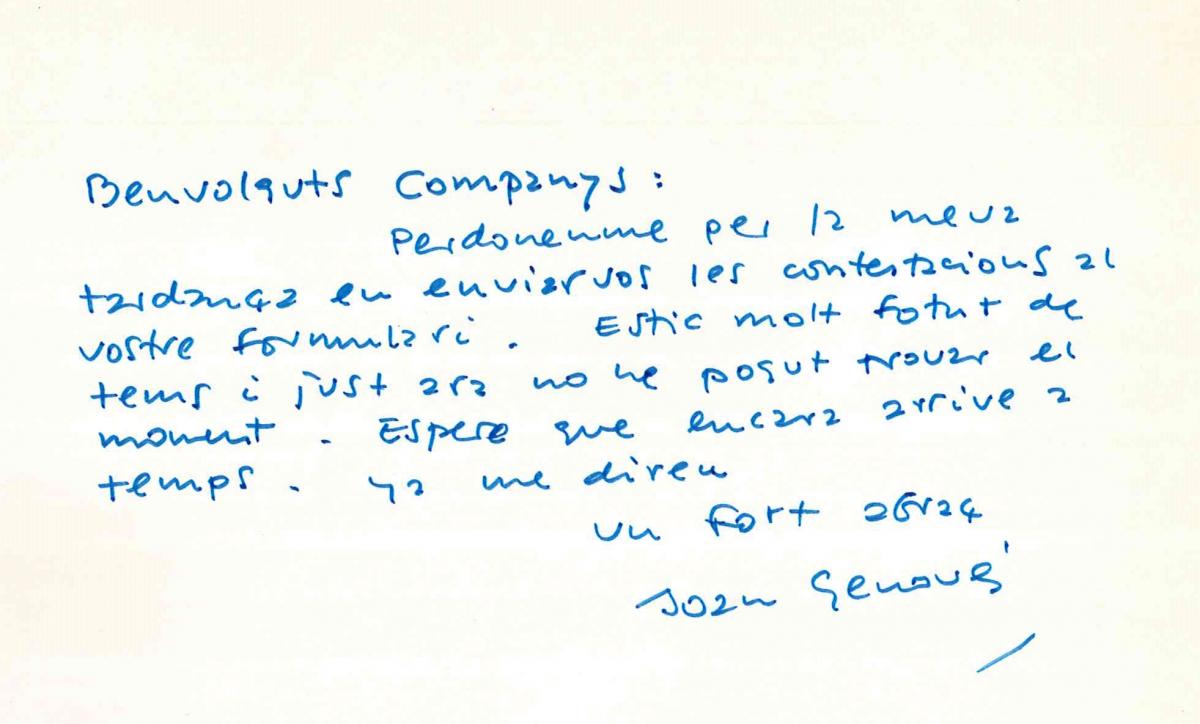 Benvolguts Companys:
Perdonenme per la meva
tardança en enviarvos les contestacions al
vostre formulari. Estic molt fotut de
tems i just ara no he pogut trovar el
moment. Espere que encara arrive a
temps. ya me direu
un fort abraç
Joan Genovés